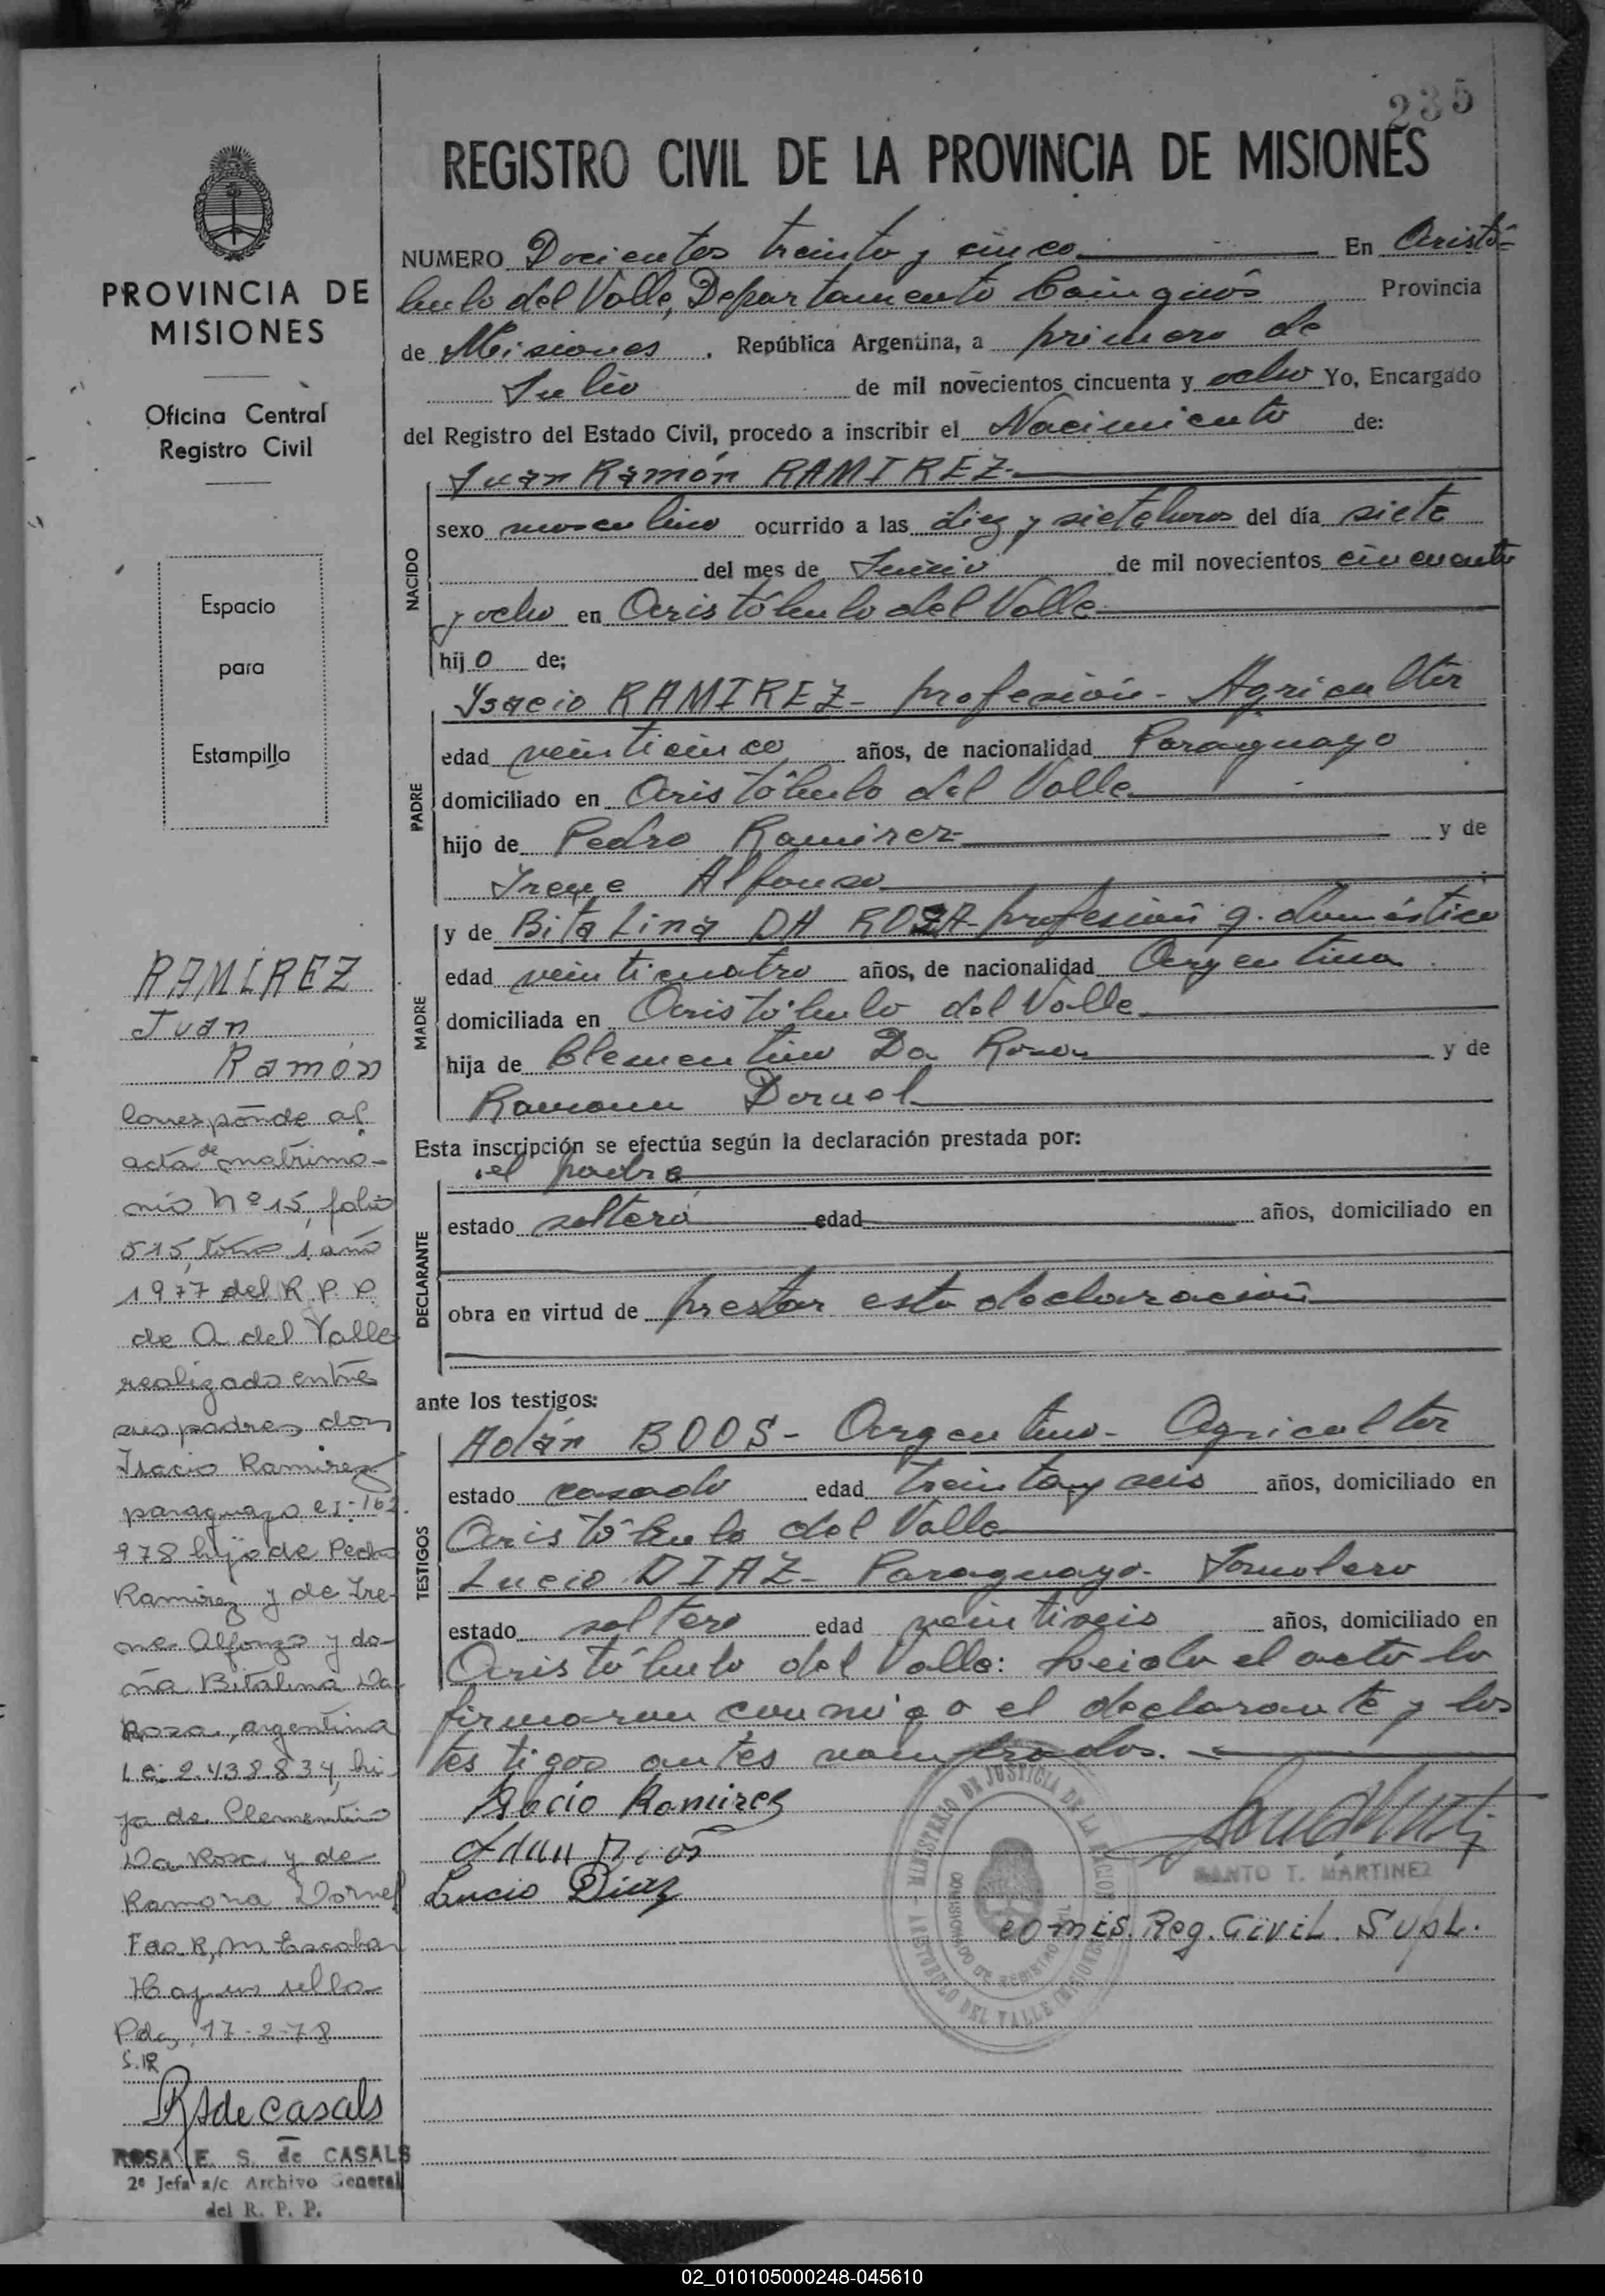 235
REGISTRO CIVIL DE LA PROVINCIA DE MISIONES
PROVINCIA DE
MISIONES
Oficina Central
Registro Civil
Espacio
para
Estampilla
NUMERO Docientos treinta y cinco En Aristó-
bulo del Valle, Departamento Cainguás Provincia
de Misiones, República Argentina, a primero de
Julio de mil novecientos cincuenta y ocho Yo, Encargado
del Registro del Estado Civil, procedo a inscribir el Nacimiento de:
Juan Ramón RAMIREZ
NACIDO
sexo masculino ocurrido a las diez y siete horas del día siete
del mes de Junio de mil novecientos cincuenta
y ocho en Aristóbulo del Valle
hijo de;
PADRE
Isacio RAMIREZ- profesión- Agricultor
edad veinticinco años, de nacionalidad Paraguayo
domiciliado en Aristóbulo del Valle
hijo de Pedro Ramirez y de
Irene Alfonso
MADRE
y de Bitalina DA ROZA- profesión q. doméstico
edad veinticuatro años, de nacionalidad Argentina
domiciliada en Aristóbulo del Valle
hija de Clementino Da Rosa y de
Ramona Dornel
Esta inscripción se efectúa según la declaración prestada por:
el padre
DECLARANTE
estado soltero edad años, domiciliado en
obra en virtud de prestar esta declaración
ante los testigos:
TESTIGOS
Adán BOOS- Argentino- Agricultor
estado casado edad treinta y seis años, domiciliado en
Aristóbulo del Valle
Lucio DIAZ- Paraguayo- Jornalero
estado soltero edad veintiseis años, domiciliado en
Aristóbulo del Valle: Leida el acta la
firmaron conmigo el declarante y los
testigos antes nombrados.
Isacio Ramirez
Lucio Diaz
SANTO T. MARTINEZ
comis. Reg. Civil. Supl.
MINISTERIO DE JUSTICIA DE LA NACION
ARISTOBULO DEL VALLE (MISIONES)
RAMIREZ
Juan
Ramón
Corresponde al
acta de matrimo-
nio Nº 15, folio
515, tomo 1, año
1977 del R. P. P.
de A del Valle
realizado entre
sus padres don
Isacio Ramirez
paraguayo c I- 162.
978 hijo de Pedro
Ramirez y de Ire-
ne Alfonzo y do-
ña Bitalina Da
Roza, argentina
L c. 2.438.834, hi-
ja de Clementino
Da Rosa y de
Ramona Dornel
Fdo R, M Escobar
Hay un sello
Pdas, 17-2-78
S.R
RS de Casals
ROSA E. S. de CASALS
2º Jefa a/c Archivo General
del R. P. P.
02_010105000248-045610